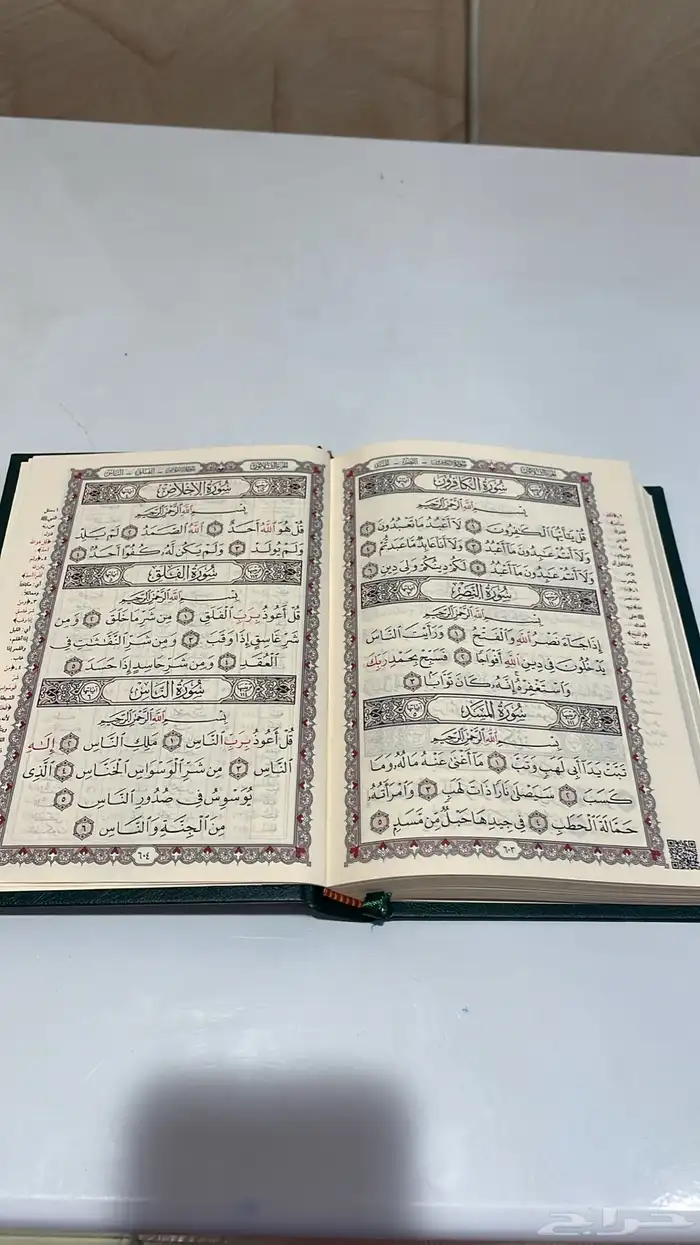 سُورَةُ الكَافِرُونَ
بِسْمِ اللَّهِ الرَّحْمَٰنِ الرَّحِيمِ
قُلْ يَٰٓأَيُّهَا ٱلْكَٰفِرُونَ ١ لَآ أَعْبُدُ مَا تَعْبُدُونَ ٢
وَلَآ أَنتُمْ عَٰبِدُونَ مَآ أَعْبُدُ ٣ وَلَآ أَنَا۠ عَابِدٌ مَّا عَبَدتُّمْ ٤
وَلَآ أَنتُمْ عَٰبِدُونَ مَآ أَعْبُدُ ٥ لَكُمْ دِينُكُمْ وَلِىَ دِينِ ٦
سُورَةُ النَّصْرِ
بِسْمِ اللَّهِ الرَّحْمَٰنِ الرَّحِيمِ
إِذَا جَآءَ نَصْرُ ٱللَّهِ وَٱلْفَتْحُ ١ وَرَأَيْتَ ٱلنَّاسَ
يَدْخُلُونَ فِى دِينِ ٱللَّهِ أَفْوَاجًا ٢ فَسَبِّحْ بِحَمْدِ رَبِّكَ
وَٱسْتَغْفِرْهُ إِنَّهُۥ كَانَ تَوَّابًۢا ٣
سُورَةُ المَسَدِ
بِسْمِ اللَّهِ الرَّحْمَٰنِ الرَّحِيمِ
تَبَّتْ يَدَآ أَبِى لَهَبٍ وَتَبَّ ١ مَآ أَغْنَىٰ عَنْهُ مَالُهُۥ وَمَا
كَسَبَ ٢ سَيَصْلَىٰ نَارًا ذَاتَ لَهَبٍ ٣ وَٱمْرَأَتُهُۥ
حَمَّالَةَ ٱلْحَطَبِ ٤ فِى جِيدِهَا حَبْلٌ مِّن مَّسَدٍۭ ٥
٦٠٣
سُورَةُ الإِخْلَاصِ
بِسْمِ اللَّهِ الرَّحْمَٰنِ الرَّحِيمِ
قُلْ هُوَ ٱللَّهُ أَحَدٌ ١ ٱللَّهُ ٱلصَّمَدُ ٢ لَمْ يَلِدْ
وَلَمْ يُولَدْ ٣ وَلَمْ يَكُن لَّهُۥ كُفُوًا أَحَدٌۢ ٤
سُورَةُ الفَلَقِ
بِسْمِ اللَّهِ الرَّحْمَٰنِ الرَّحِيمِ
قُلْ أَعُوذُ بِرَبِّ ٱلْفَلَقِ ١ مِن شَرِّ مَا خَلَقَ ٢ وَمِن
شَرِّ غَاسِقٍ إِذَا وَقَبَ ٣ وَمِن شَرِّ ٱلنَّفَّٰثَٰتِ فِى
ٱلْعُقَدِ ٤ وَمِن شَرِّ حَاسِدٍ إِذَا حَسَدَ ٥
سُورَةُ النَّاسِ
بِسْمِ اللَّهِ الرَّحْمَٰنِ الرَّحِيمِ
قُلْ أَعُوذُ بِرَبِّ ٱلنَّاسِ ١ مَلِكِ ٱلنَّاسِ ٢ إِلَٰهِ
ٱلنَّاسِ ٣ مِن شَرِّ ٱلْوَسْوَاسِ ٱلْخَنَّاسِ ٤ ٱلَّذِى
يُوَسْوِسُ فِى صُدُورِ ٱلنَّاسِ ٥
مِنَ ٱلْجِنَّةِ وَٱلنَّاسِ ٦
٦٠٤
حراج